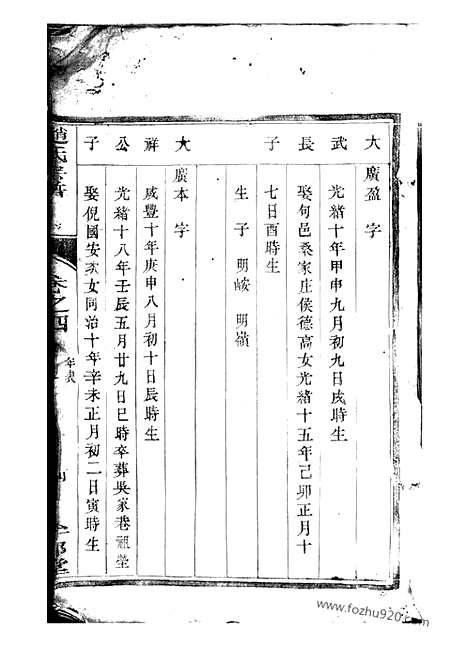 大 廣盈字
武 光緒十年甲申九月初九日戌時生
長 娶句邑桑家庄侯德高女光緒十五年己卯正月十
子 七日酉時生
生子 明峻 明嶺
大 廣本字
祥 咸豐十年庚申八月初十日辰時生
公 光緒十八年壬辰五月廿九日巳時卒葬吳家巷祖塋
子 娶倪國安次女同治十年辛未正月初二日寅時生
趙氏宗譜
卷之四
年表
www.fozhu920.com